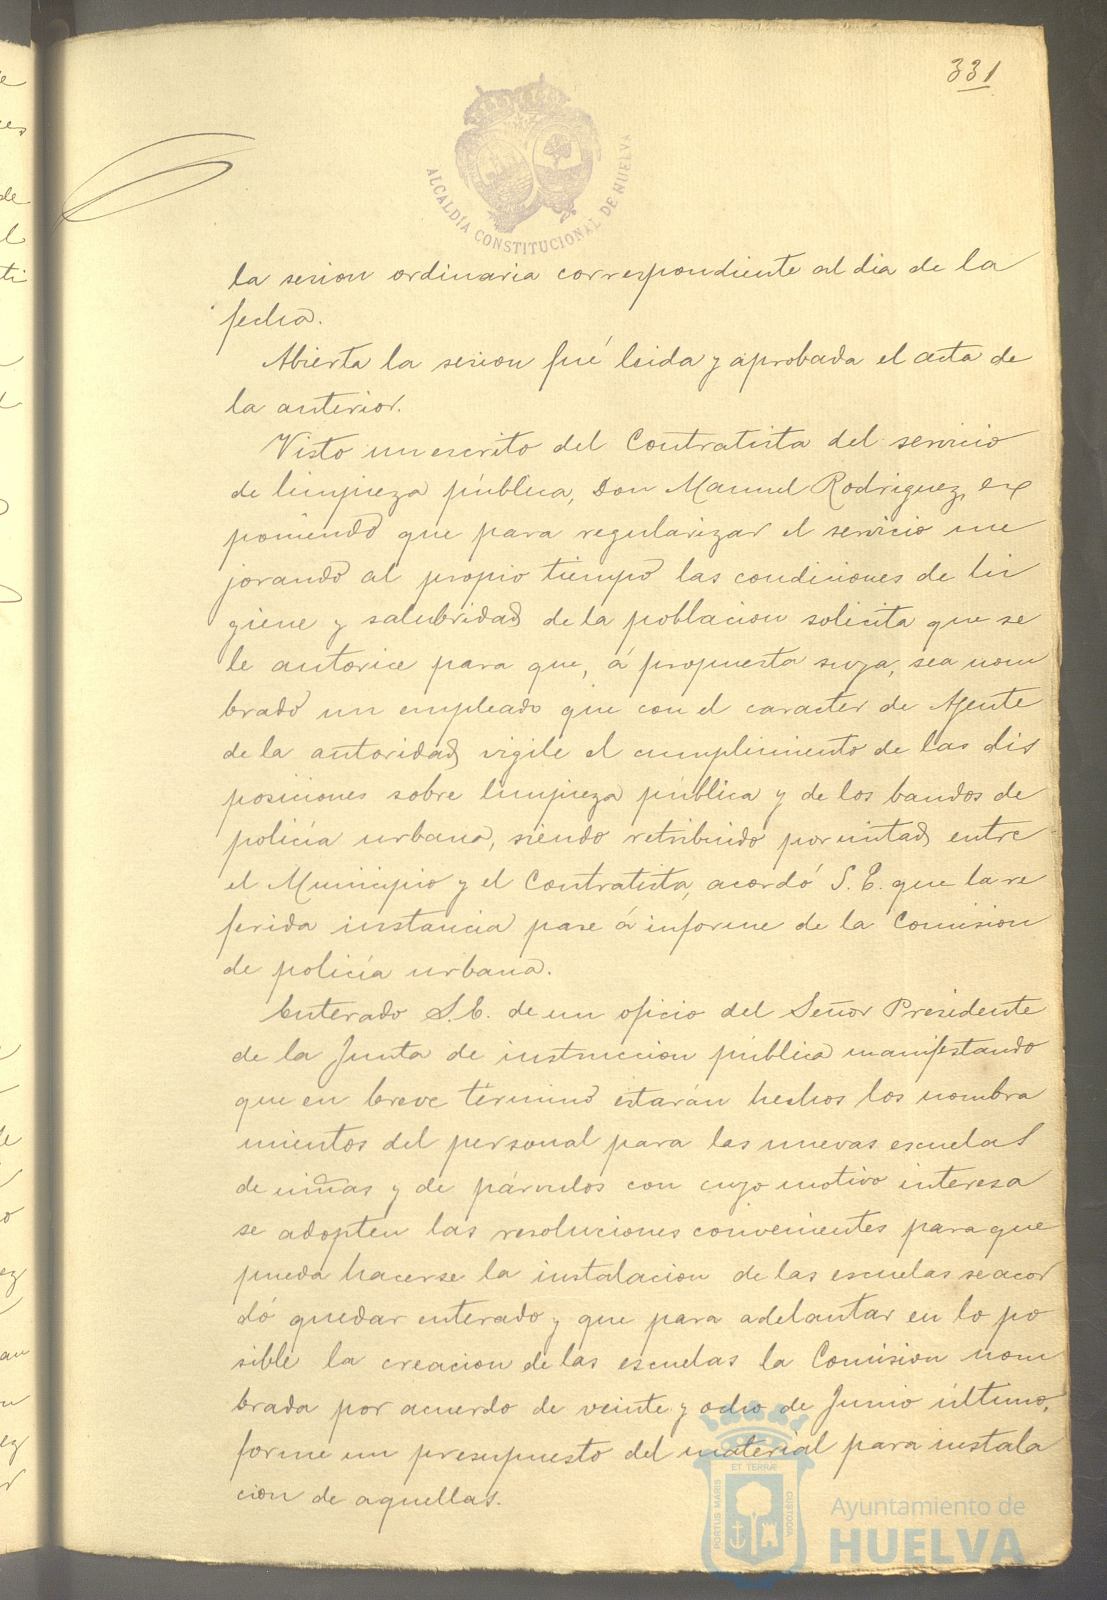 331
ALCALDÍA CONSTITUCIONAL DE HUELVA
la sesion ordinaria correspondiente al dia de la
fecha.
Abierta la sesion fué leida y aprobada el acta de
la anterior.
Visto un escrito del Contratista del servicio
de limpieza pública, Don Manuel Rodriguez, ex
poniendo que para regularizar el servicio me
jorando al propio tiempo las condiciones de hi
giene y salubridad de la poblacion solicita que se
le autorice para que, á propuesta suya, sea nom
brado un empleado que con el caracter de Agente
de la autoridad vigile el cumplimiento de las dis
posiciones sobre limpieza pública y de los bandos de
policía urbana, siendo retribuido por mitad entre
el Municipio y el Contratista, acordó S. E. que la re
ferida instancia pase á informe de la Comision
de policía urbana.
Enterado S. E. de un oficio del Señor Presidente
de la Junta de instruccion pública manifestando
que en breve término estarán hechos los nombra
mientos del personal para las nuevas escuelas
de niñas y de párvulos con cuyo motivo interesa
se adopten las resoluciones convenientes para que
pueda hacerse la instalacion de las escuelas se acor
dó quedar enterado y que para adelantar en lo po
sible la creacion de las escuelas la Comision nom
brada por acuerdo de veinte y ocho de Junio último,
forme un presupuesto del material para instala
cion de aquellas.
PORTUS MARIS ET TERRÆ CUSTODIA
Ayuntamiento de
HUELVA